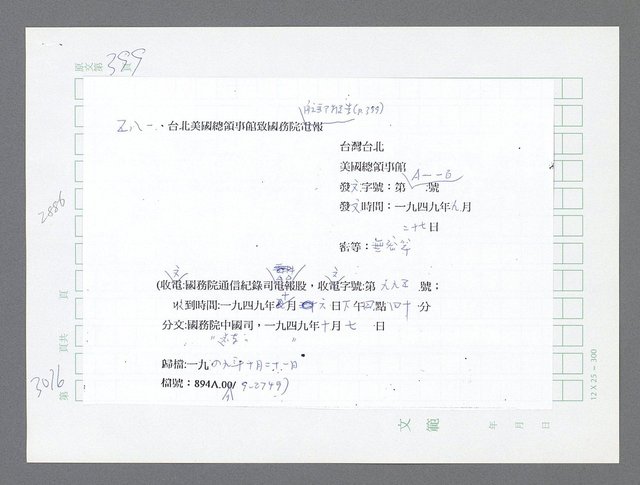 原文第399頁
五八一、台北美國總領事館致國務院電報
台灣台北
美國總領事館
A--6
發文字號：第 號
發文時間：一九四九年九月
二十七日
密等：無密等
文 文
(收電:國務院通信紀錄司電報股，收電字號:第 號：
收到時間:一九四九年 月 日下午四點四十分
分文:國務院中國司，一九四九年十月七日
歸檔:一九四九年十月二十一日
檔號：894A.00/9-2749)
2886
頁
頁共
3016
第
12 X 25 - 300
文範
年 月 日